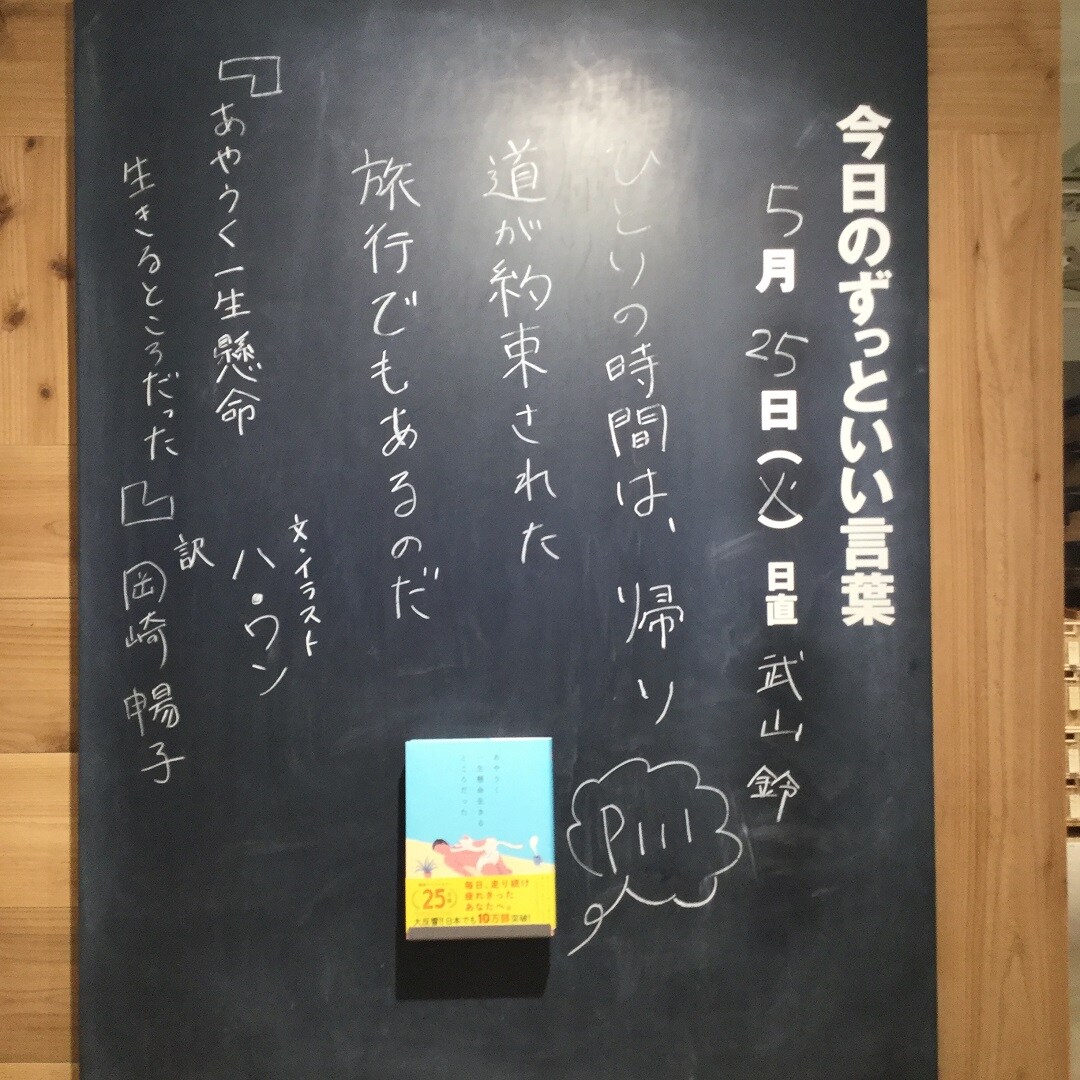 今日のずっといい言葉
5月25日(火)日直 武山 鈴
ひとりの時間は、帰り
道が約束された
旅行でもあるのだ
『あやうく一生懸命
生きるところだった』
文・イラスト
ハ・ワン
訳
岡崎 暢子
P111
あやうく、
一生懸命生きる
ところだった
25
毎日、走り続け
疲れきった
あなたへ。
大反響!!日本でも10万部突破!